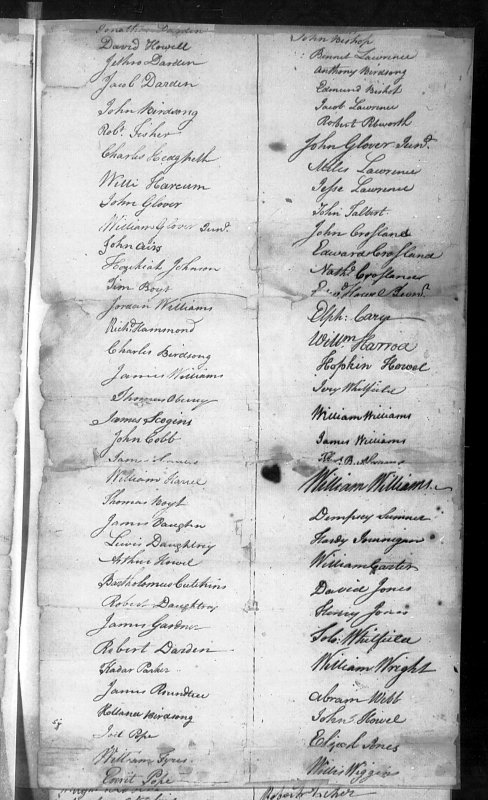 Jonathan Darden
David Howell
Jethro Darden
Jacob Darden
John Birdsong
Robt. Fisher
Charles Hedgpeth
Willi Harcum
John Glover
William Glover Junr.
John Airs
Hezekiah Johnson
Jim Boyt
Jordan Williams
Richd Hammond
Charles Birdsong
James Williams
Thomas Oberry
James Scogins
John Cobb
William Harre
Thomas Boyt
James
Lewis Daughtrey
Arthur Howel
Bartholomew Cutchins
Robert Daughtrey
James Gardner
Robert Darden
Kadar Parker
James Roundtree
Rolland Birdsong
Joel Pope
William Tyres
Pope
John Bishop
Bennet Lawrence
Anthony Birdsong
Edmund Bishop
Jacob Lawrence
Robert
John Glover Junr.
Miles Lawrence
Jesse Lawrence
John Talbot
John Crosland
Edward Crosland
Nathl. Croslander
Howel Junr.
Elph: Cary
Willm. Harrod
Hopkin Howel
Ivey Whitfield
William Williams
James Williams
William Williams
Dempsey Sumner
Hardy
William Carter
David Jones
Henry Jones
Solo: Whitfield
William Wright
Abram Webb
John Howel
Elijah Jones
Willis Wiggins